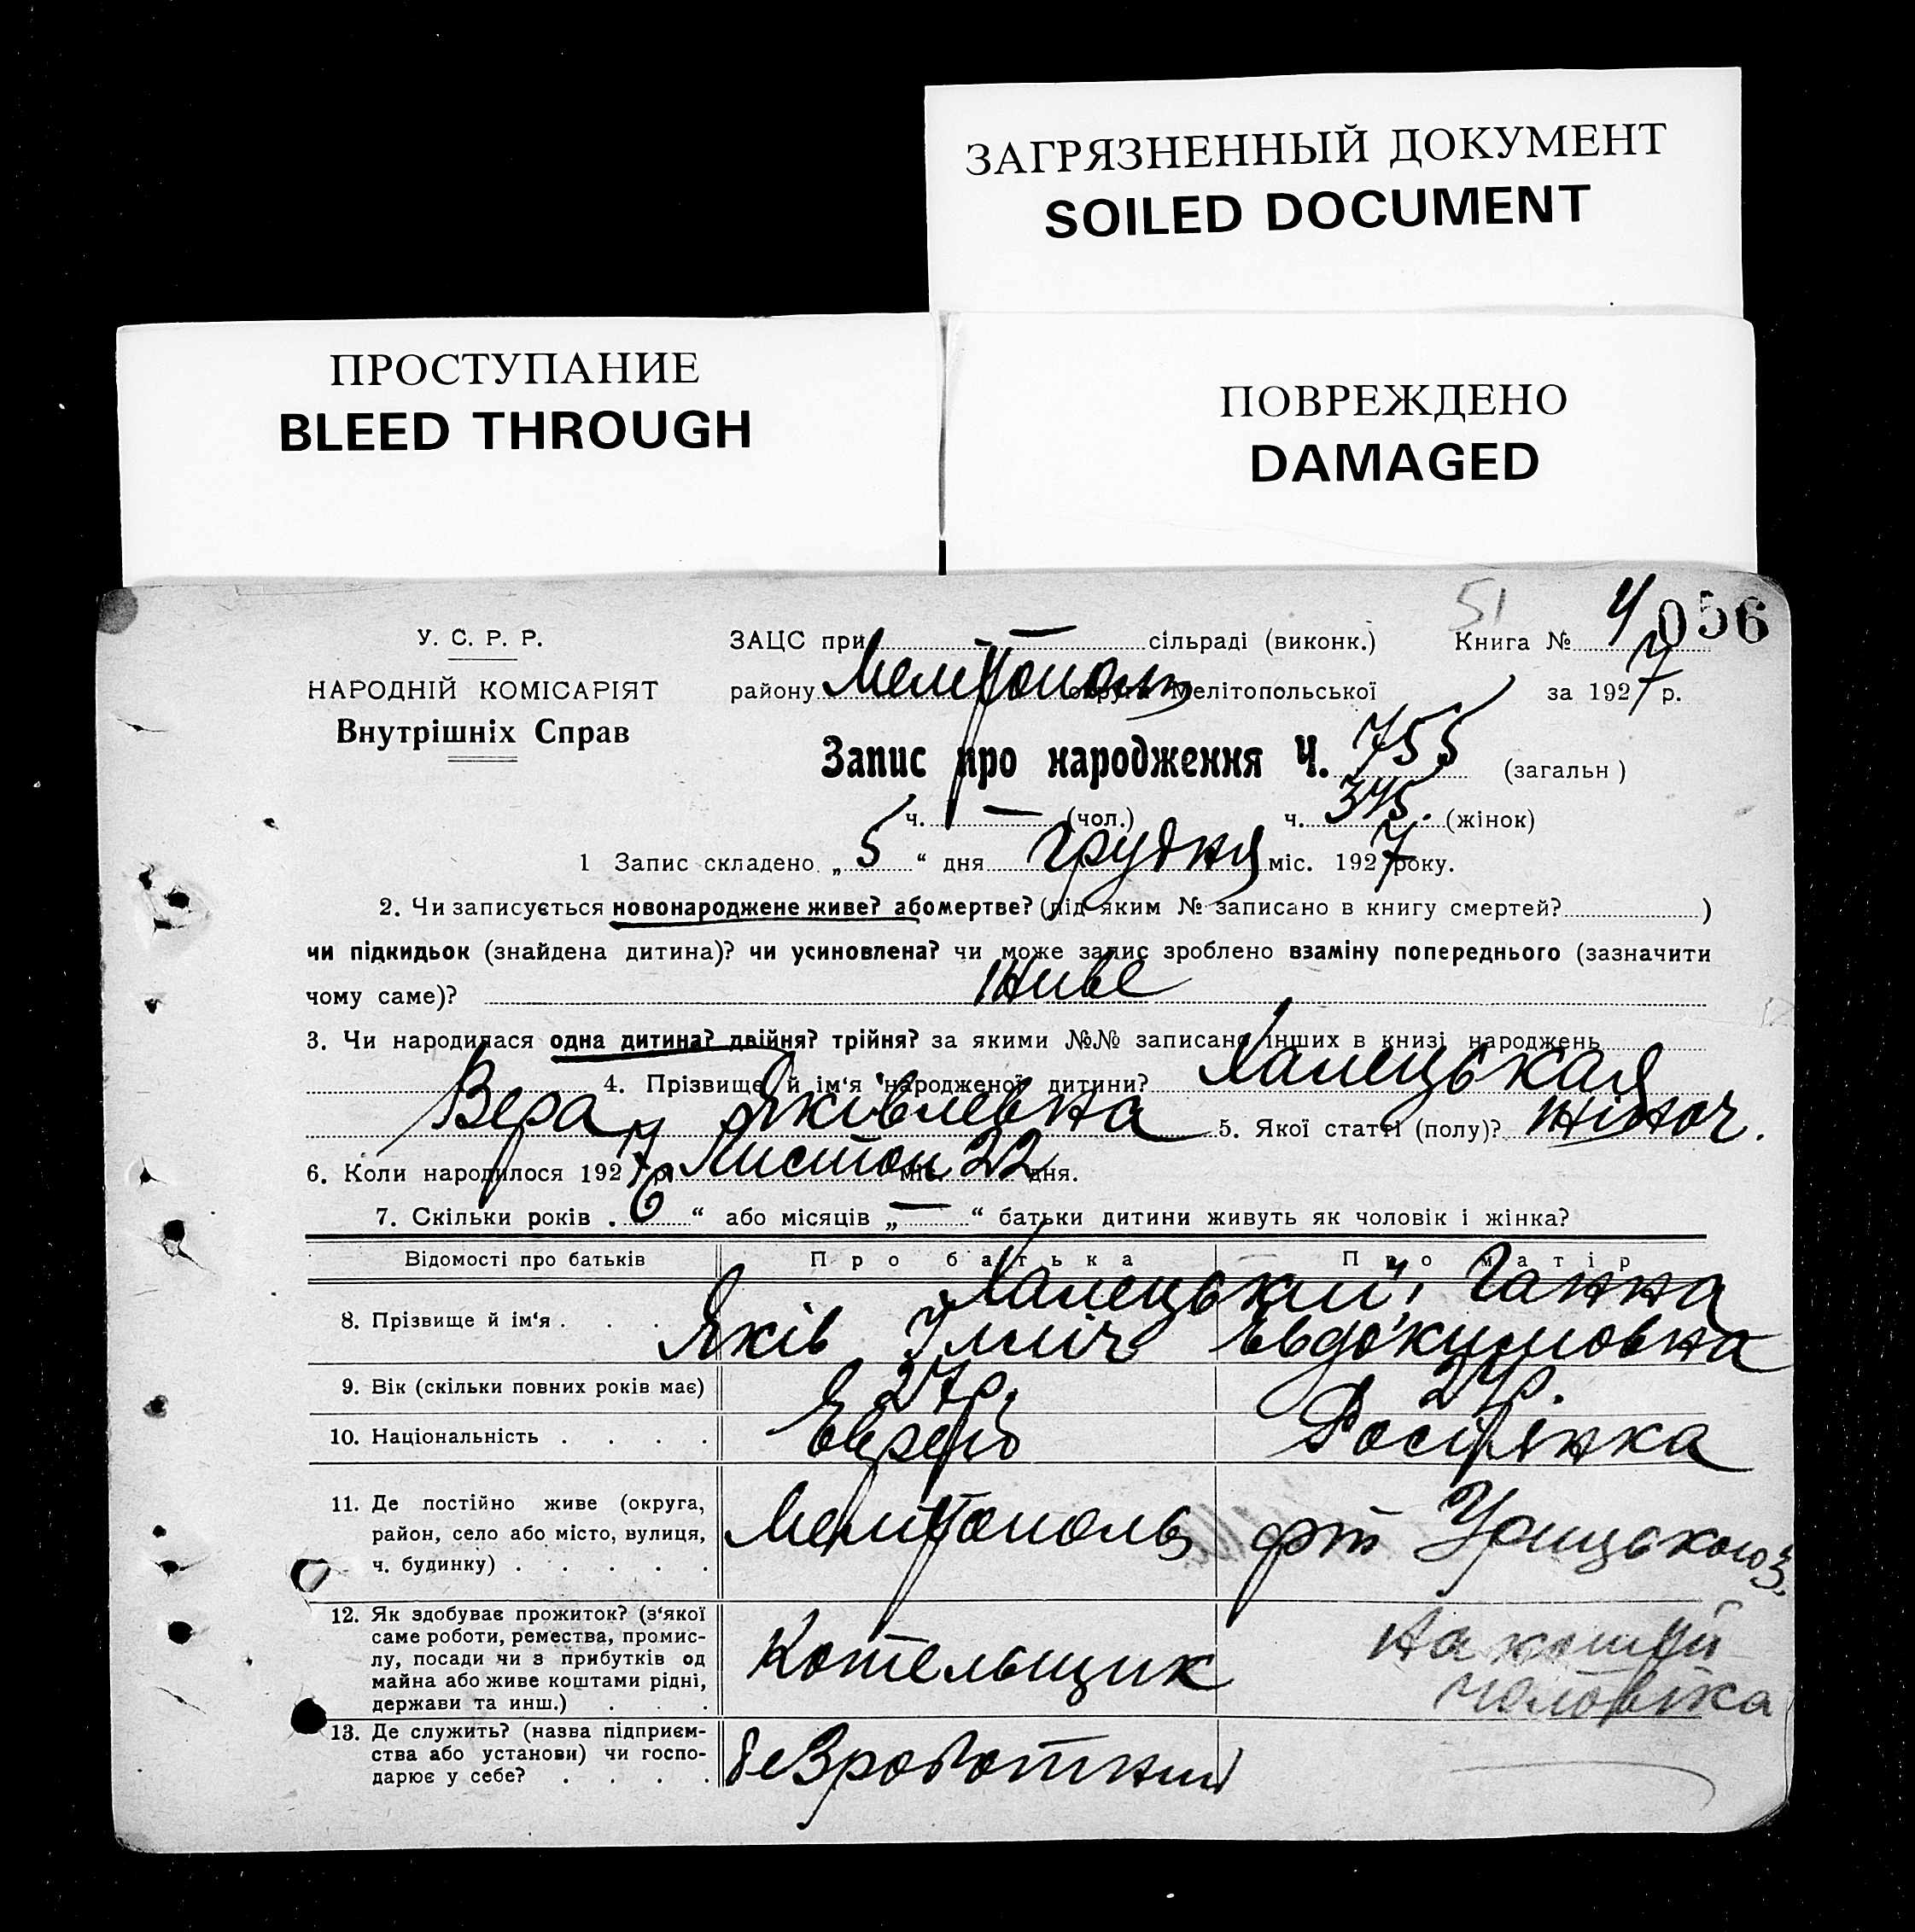 ЗАГРЯЗНЕННЫЙ ДОКУМЕНТ
SOILED DOCUMENT
ПРОСТУПАНИЕ
BLEED THROUGH
ПОВРЕЖДЕНО
DAMAGED
51
056
У. С. Р. Р.
НАРОДНІЙ КОМІСАРІЯТ
Внутрішніх Справ
ЗАЦС при — сільраді (виконк.) Книга № 4
району Мелітополь округи Мелітопольської за 1927 р.
Запис про народження Ч. 755 (загальн)
ч. — (чол.) ч. 345. (жінок)
1 Запис складено „5“ дня Грудня міс. 1927 року.
2. Чи записується новонароджене живе? або мертве? (під яким № записано в книгу смертей? )
чи підкидьок (знайдена дитина)? чи усиновлена? чи може запис зроблено взаміну попереднього (зазначити
чому саме)? Живе
3. Чи народилася одна дитина? двійня? трійня? за якими №№ записано інших в книзі народжень
4. Прізвище й ім'я народженої дитини? Халецькая
Вера Яківлевна 5. Якої статті (полу)? жіноч.
6. Коли народилося 1927 р. Листоп міс. 22 дня.
7. Скільки років „6“ або місяців „—“ батьки дитини живуть як чоловік і жінка?
Відомості про батьків Про батька Про матір
8. Прізвище й ім'я . . . Халецький Ганна
Яків Ілліч Евдокимовна
9. Вік (скільки повних років має) 27р. 24р.
10. Національність . . . . Еврей Росіянка
11. Де постійно живе (округа,
район, село або місто, вулиця,
ч. будинку) . . . . . Мелітополь Урицького 3.
12. Як здобуває прожиток? (з'якої
саме роботи, ремества, промис-
лу, посади чи з прибутків од
майна або живе коштами рідні,
держави та инш.) . . . Котельщик на кошті
чоловіка
13. Де служить? (назва підприєм-
ства або установи) чи госпо-
дарює у себе? . . . . безроботний